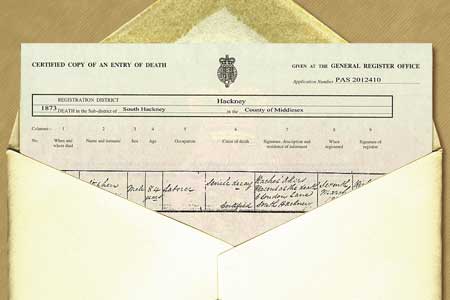 CERTIFIED COPY OF AN ENTRY OF DEATH
GIVEN AT THE GENERAL REGISTER OFFICE
Application Number PAS 2012410
REGISTRATION DISTRICT Hackney
1873 DEATH in the Sub-district of South Hackney in the County of Middlesex
Columns:- 1 2 3 4 5 6 7 8 9
No. When and where died Name and surname Sex Age Occupation Cause of death Signature, description and residence of informant When registered Signature of registrar
Male 84 years Laborer Senile decay Certified
Present at the death
6 London Lane
South Hackney
Seventh
March